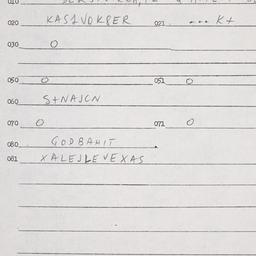 020 KAS1VOKPER 021 ... K+
030 O
050 O 051 O
060 S+NAJCN
070 O 071 O
080 GODBAHIT
081 XALEJLEVEXAS